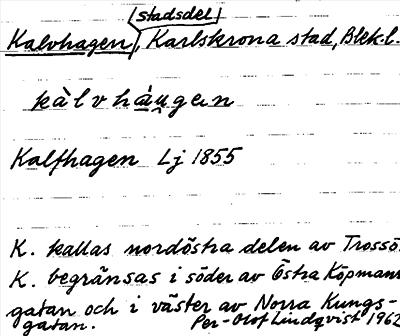 stadsdel
Kalvhagen, Karlskrona stad, Blek.l.
kàlvháu̯gen
Kalfhagen Lj 1855
K. kallas nordöstra delen av Trossö.
K. begränsas i söder av Östra Köpmans-
gatan och i väster av Norra Kungs-
gatan. Per-Olof Lindqvist 1962